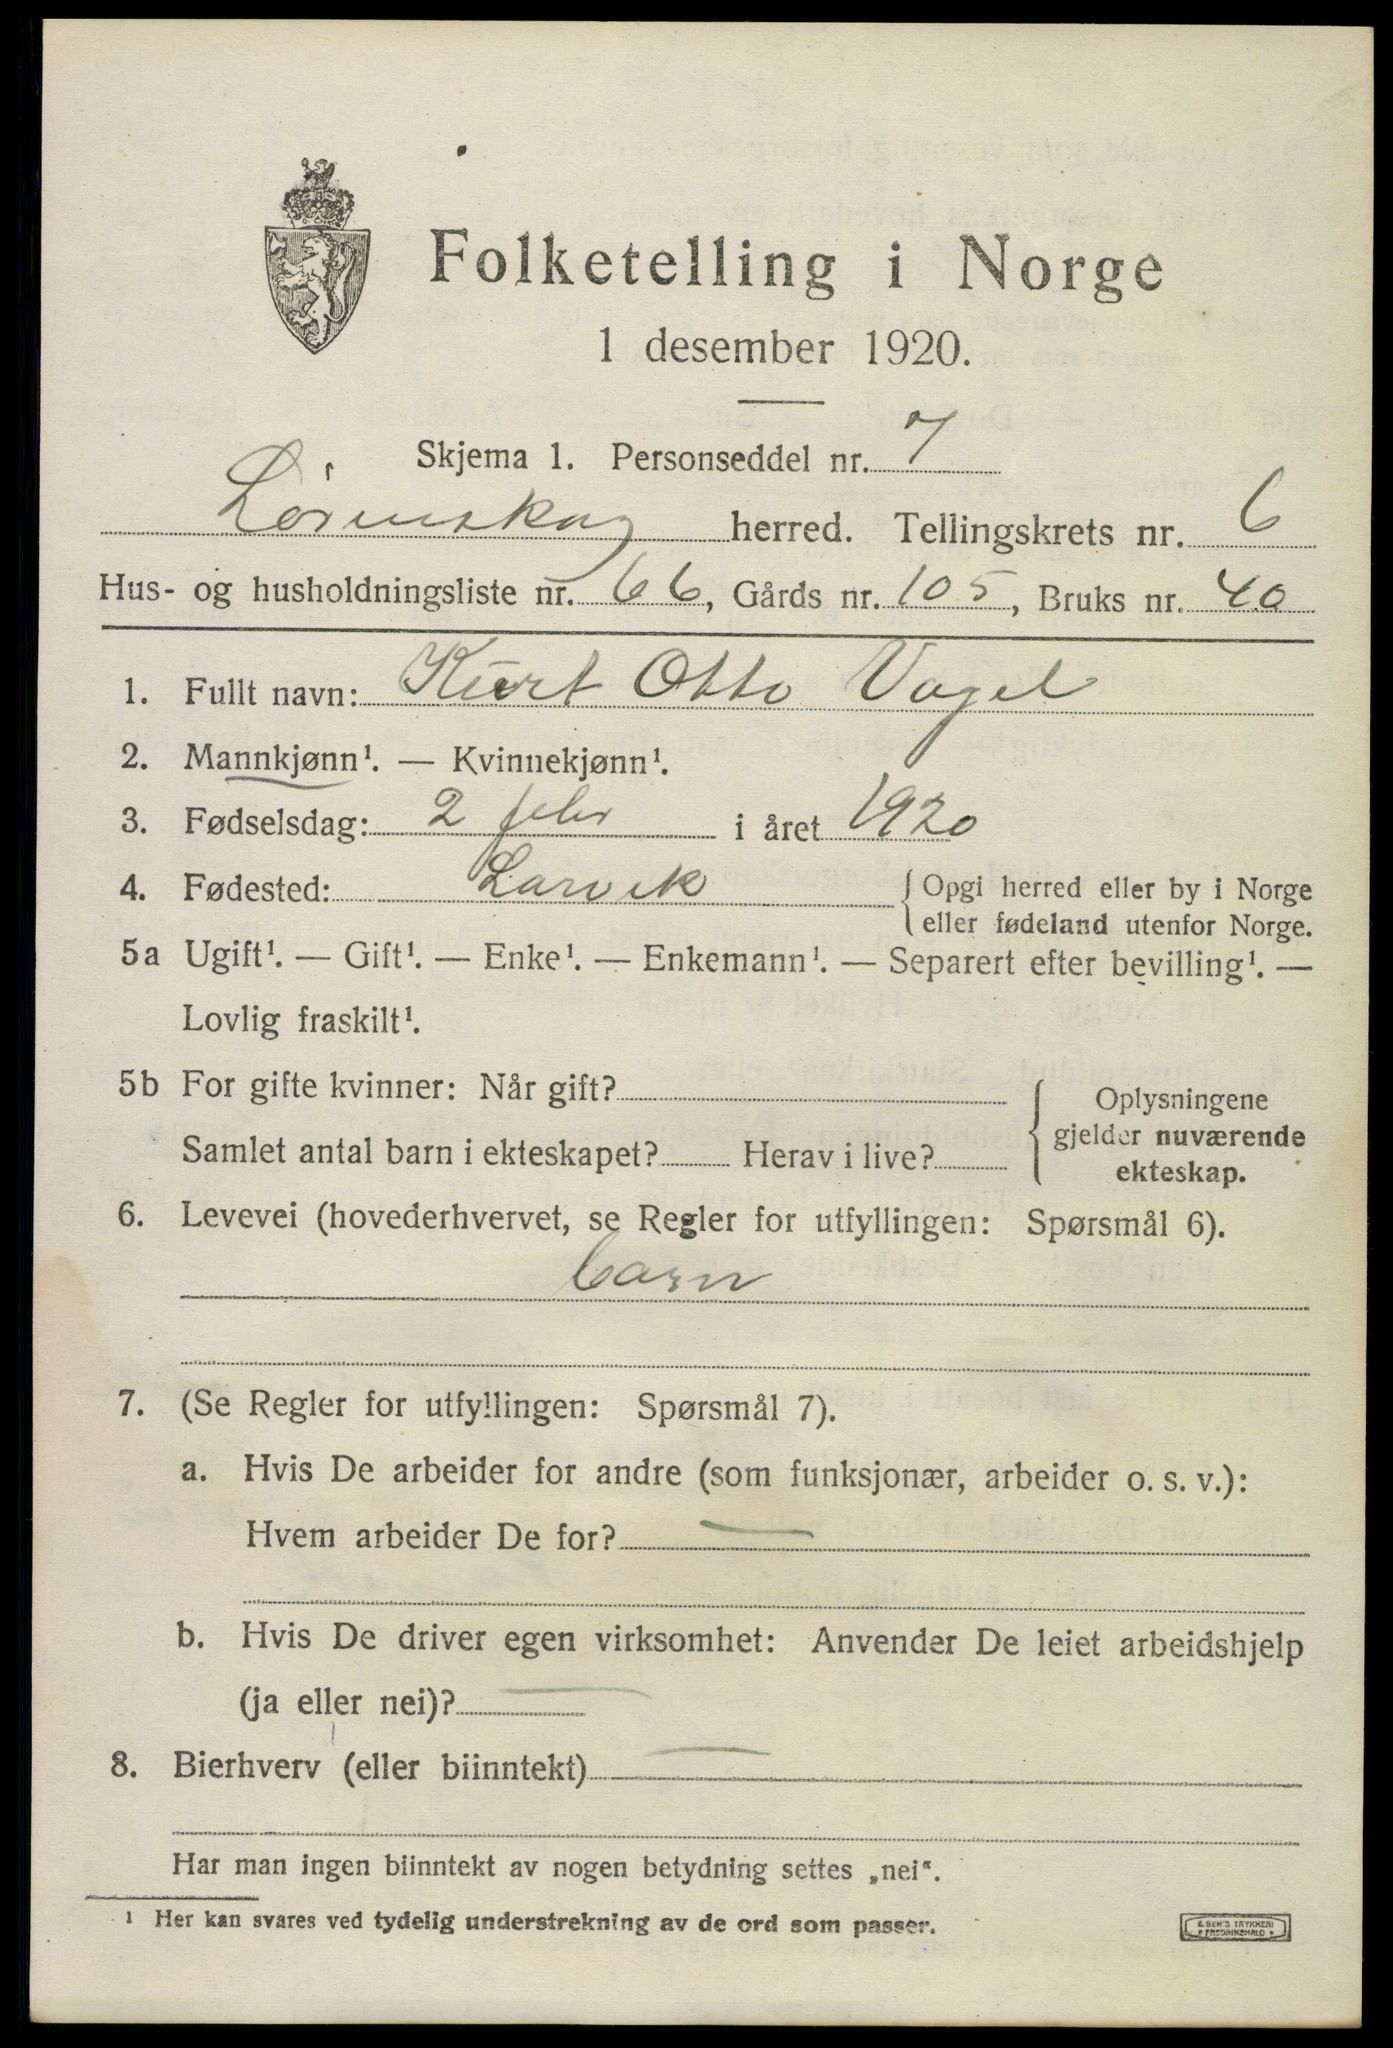 Folketelling i Norge
1 desember 1920.
Skjema 1. Personseddel nr. 7
Lørenskog herred. Tellingskrets nr. 6
Hus- og husholdningsliste nr. 66, Gårds nr. 105, Bruks nr. 40
1. Fullt navn: Kurt Otto Vogel
2. Mannkjønn¹. — Kvinnekjønn¹.
3. Fødselsdag: 2 febr i året 1920
4. Fødested: Larvik {Opgi herred eller by i Norge
eller fødeland utenfor Norge.
5a Ugift¹. — Gift¹. — Enke¹. — Enkemann¹. — Separert efter bevilling¹. —
Lovlig fraskilt¹.
5b For gifte kvinner: Når gift?
Samlet antal barn i ekteskapet? Herav i live?
Oplysningene
gjelder nuværende
ekteskap.
6. Levevei (hovederhvervet, se Regler for utfyllingen: Spørsmål 6).
barn
7. (Se Regler for utfyllingen: Spørsmål 7).
a. Hvis De arbeider for andre (som funksjonær, arbeider o. s. v.):
Hvem arbeider De for? —
b. Hvis De driver egen virksomhet: Anvender De leiet arbeidshjelp
(ja eller nei)? —
8. Bierhverv (eller biinntekt) —
Har man ingen biinntekt av nogen betydning settes „nei“.
¹ Her kan svares ved tydelig understrekning av de ord som passer.
E. SEM'S TRYKKERI
FREDRIKSHALD